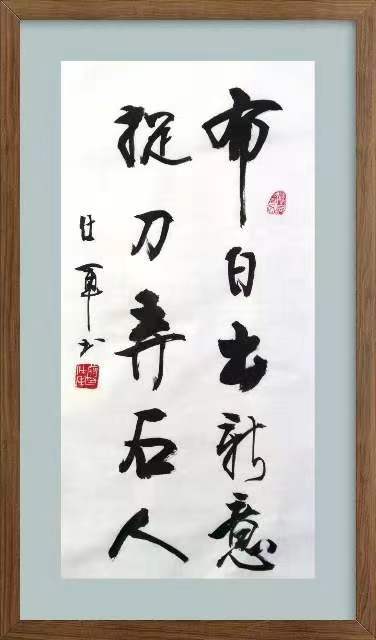 布白出新意
捉刀弄石人
仕軍书